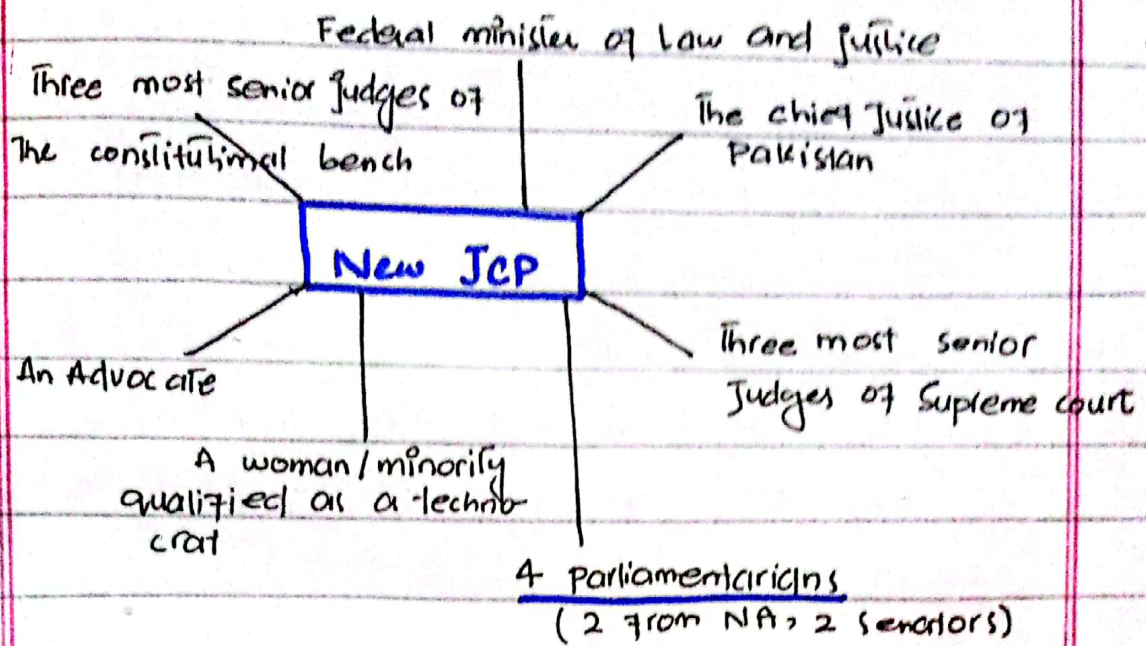 Federal minister of Law and justice
Three most senior Judges of
The constitutional bench
The chief Justice of
Pakistan
New JCP
An Advocate
Three most senior
Judges of Supreme court
A woman/minority
qualified as a techno-
crat
4 parliamentarians
(2 from NA, 2 senators)